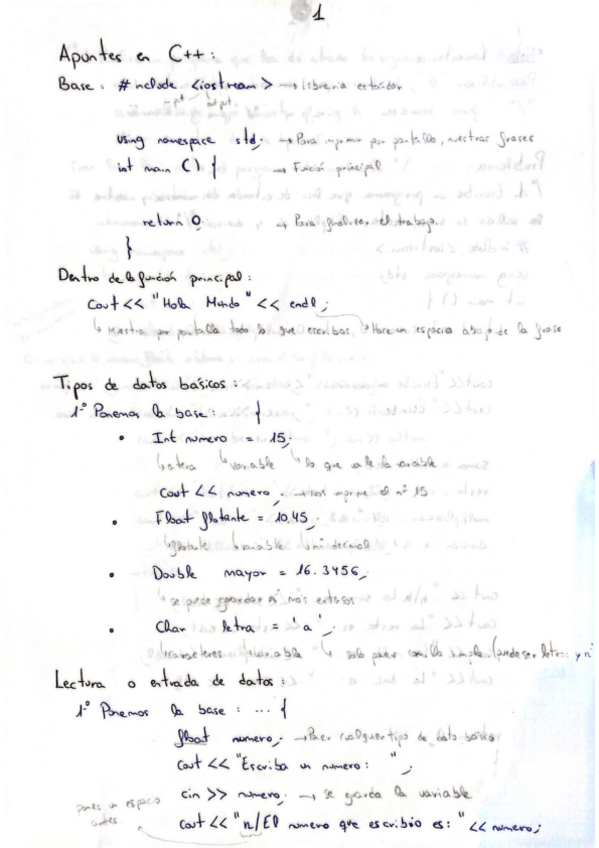 1
Apuntes en C++:
Base: #include <iostream> → libreria estándar
input output
using namespace std; → Para imprimir por pantalla, nuestras frases
int main () { → Función principal
return 0; → Para finalizar el trabajo.
}
Dentro de la función principal:
cout << "Hola Mundo" << endl;
↳ Muestra por pantalla todo lo que escribas. ↳ Hace un espacio abajo de la frase
Tipos de datos básicos:
1º Ponemos la base: {
• Int numero = 15;
↳ entera ↳ variable ↳ lo que vale la variable
cout << numero; → nos imprime el nº 15.
• Float flotante = 10,45;
↳ flotante ↳ variable ↳ nº decimal
• Double mayor = 16.3456;
↳ se puede guardar nº más extensos
• Char letra = 'a';
↳ caracteres ↳ variable ↳ solo poner comilla simple (puede ser letras y nº
Lectura o entrada de datos:
1º Ponemos la base: ... {
float numero; → Poner cualquier tipo de dato básico
cout << "Escriba un numero: ";
cin >> numero; → se guarda la variable
pones un espacio
antes.
cout << "n/El numero que escribio es: " << numero;